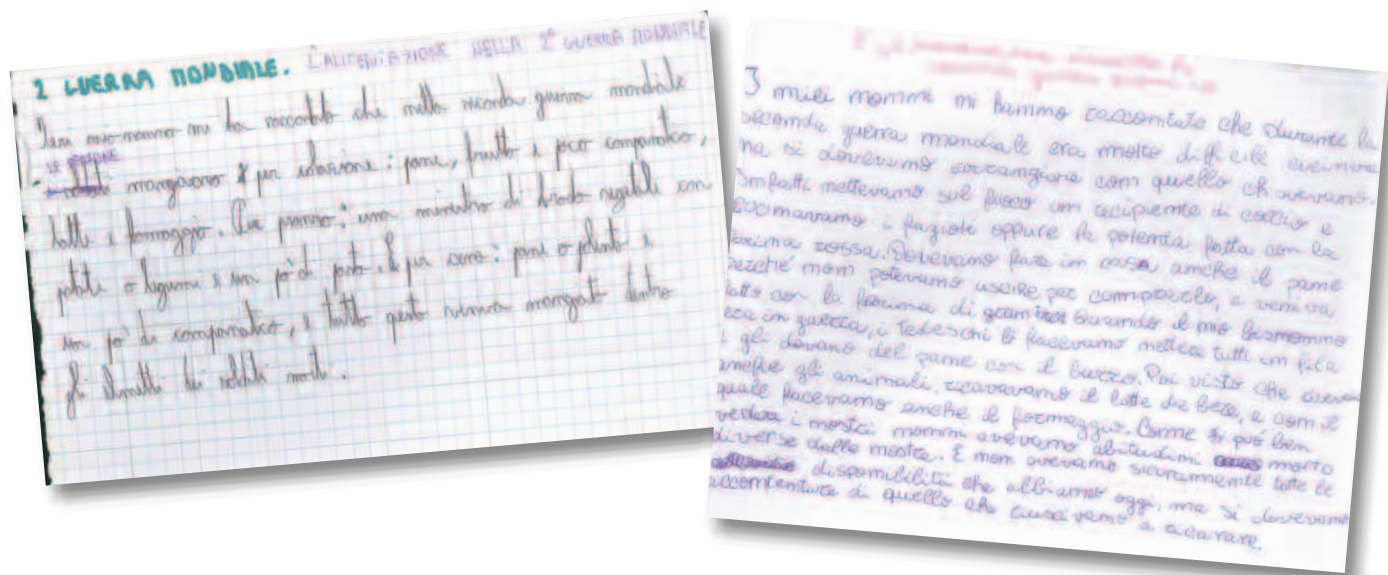 2 GUERRA MONDIALE. L'ALIMENTAZIONE NELLA 2° GUERRA MONDIALE
Ieri mio nonno mi ha raccontato che nella seconda guerra mondiale
LE PERSONE
mangiavano per colazione: pane, frutta e poco companatico,
latte e formaggio. Per pranzo: una minestra di brodo vegetale con
patate o legumi e un po' di pasta. E per cena: pane o polenta e
un po' di companatico, e tutto questo veniva mangiato dentro
gli elmetti dei soldati morti.
I miei nonni mi hanno raccontato che durante la
seconda guerra mondiale era molto difficile cucinare
ma si dovevano arrangiare con quello ch avevano.
Infatti mettevano sul fuoco un recipiente di coccio e
cucinavano i fagioli oppure la polenta fatta con la
farina rossa. Dovevano fare in casa anche il pane
perché non potevano uscire per comprarlo, e veniva
fatto con la farina di grano. Quando il mio bisnonno
era in guerra, i Tedeschi li facevano mettere tutti in fila
e gli davano del pane con il burro. Poi visto che avevano
anche gli animali, ricavavano il latte da bere, e con il
quale facevano anche il formaggio. Come si può ben
vedere i nostri nonni avevano abitudini molto
diverse dalle nostre. E non avevano sicuramente tutte le
disponibilità che abbiamo oggi, ma si dovevano
accontentare di quello che riuscivano a ricavare.